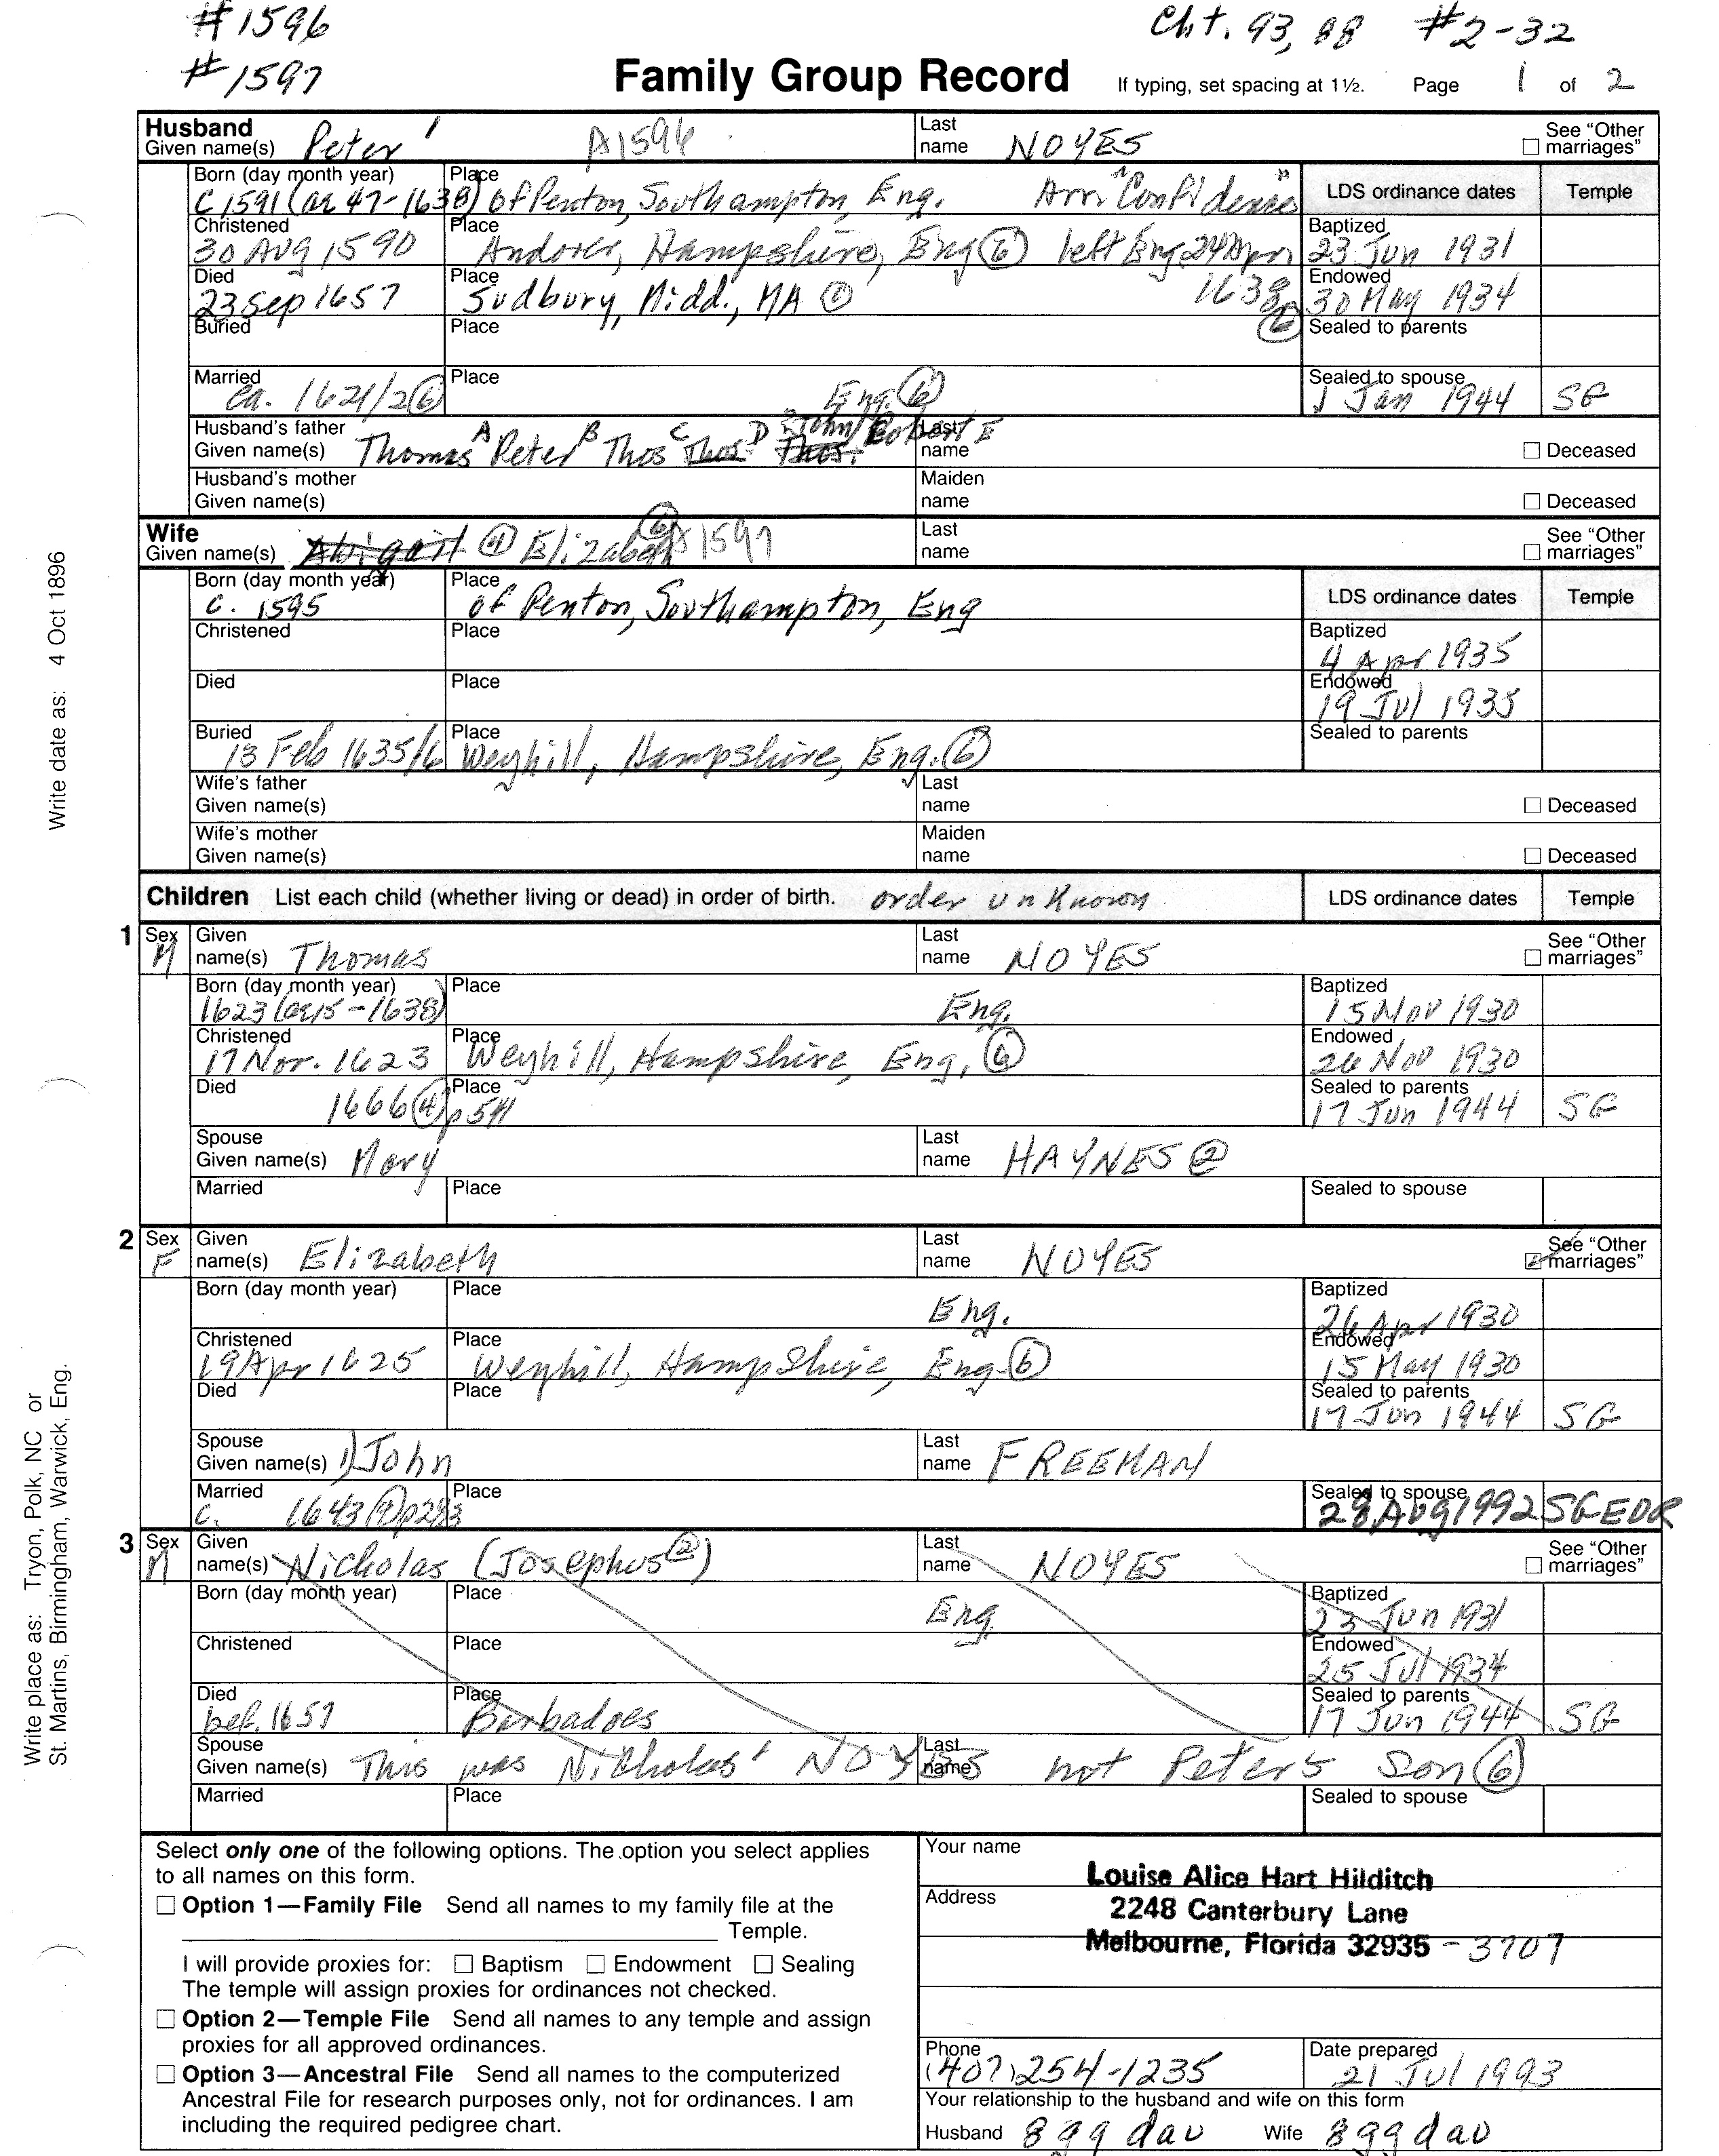 #1596
Cht. 93, 88 #2-32
#1597
Family Group Record If typing, set spacing at 1½. Page 1 of 2
Husband
Given name(s) Peter¹ A1596 Last name NOYES See "Other marriages"
Born (day month year) Place LDS ordinance dates Temple
C 1591 (ae 47-1638) of Penton, Southampton, Eng. Arr. "Confidence"
Christened Place Baptized
30 Aug 1590 Andover, Hampshire, Eng (6) left Eng 24 Apr 1638 (6) 23 Jun 1931
Died Place Endowed
23 Sep 1657 Sudbury, Midd., MA (6) 30 May 1934
Buried Place Sealed to parents
Married Place Sealed to spouse
ca. 1621/2 (6) Eng. (6) 1 Jan 1944 SG
Husband's father
Given name(s) Thomas A Peter B Thos C Thos. D Thos. John Robert E Last name Deceased
Husband's mother
Given name(s) Maiden name Deceased
Wife
Given name(s) Abigail (4) Elizabeth (6) A1597 Last name See "Other marriages"
Born (day month year) Place LDS ordinance dates Temple
c. 1595 of Penton, Southampton, Eng
Christened Place Baptized
4 Apr 1935
Died Place Endowed
19 Jul 1935
Buried Place Sealed to parents
13 Feb 1635/6 Weyhill, Hampshire, Eng. (6)
Wife's father
Given name(s) Last name Deceased
Wife's mother
Given name(s) Maiden name Deceased
Children List each child (whether living or dead) in order of birth. order unknown LDS ordinance dates Temple
1 Sex M Given name(s) Thomas Last name NOYES See "Other marriages"
Born (day month year) Place Baptized
1623 (ae 15-1638) Eng. 15 Nov 1930
Christened Place Endowed
17 Nov. 1623 Weyhill, Hampshire, Eng, (6) 26 Nov 1930
Died Place Sealed to parents
1666 (4) p 541 17 Jun 1944 SG
Spouse
Given name(s) Mary Last name HAYNES (2)
Married Place Sealed to spouse
2 Sex F Given name(s) Elizabeth Last name NOYES See "Other marriages"
Born (day month year) Place Baptized
Eng. 26 Apr 1930
Christened Place Endowed
19 Apr 1625 Weyhill, Hampshire, Eng. (6) 15 May 1930
Died Place Sealed to parents
17 Jun 1944 SG
Spouse
Given name(s) 1) John Last name FREEMAN
Married Place Sealed to spouse
c. 1643 (4) p283 28 Aug 1992 SG EDR
3 Sex M Given name(s) Nicholas (Josephus (2)) Last name NOYES See "Other marriages"
Born (day month year) Place Baptized
Eng. 23 Jun 1931
Christened Place Endowed
25 Jul 1934
Died Place Sealed to parents
bef. 1657 Barbadoes 17 Jun 1944 SG
Spouse Last name
Given name(s) This was Nicholas' NOYES not Peter's son (6)
Married Place Sealed to spouse
Select only one of the following options. The option you select applies
to all names on this form.
Option 1—Family File Send all names to my family file at the
Temple.
I will provide proxies for: Baptism Endowment Sealing
The temple will assign proxies for ordinances not checked.
Option 2—Temple File Send all names to any temple and assign
proxies for all approved ordinances.
Option 3—Ancestral File Send all names to the computerized
Ancestral File for research purposes only, not for ordinances. I am
including the required pedigree chart.
Your name
Louise Alice Hart Hilditch
Address
2248 Canterbury Lane
Melbourne, Florida 32935-3707
Phone Date prepared
(407) 254-1235 21 Jul 1993
Your relationship to the husband and wife on this form
Husband 8 gg dau Wife 8 gg dau
Write date as: 4 Oct 1896
Write place as: Tryon, Polk, NC or
St. Martins, Birmingham, Warwick, Eng.